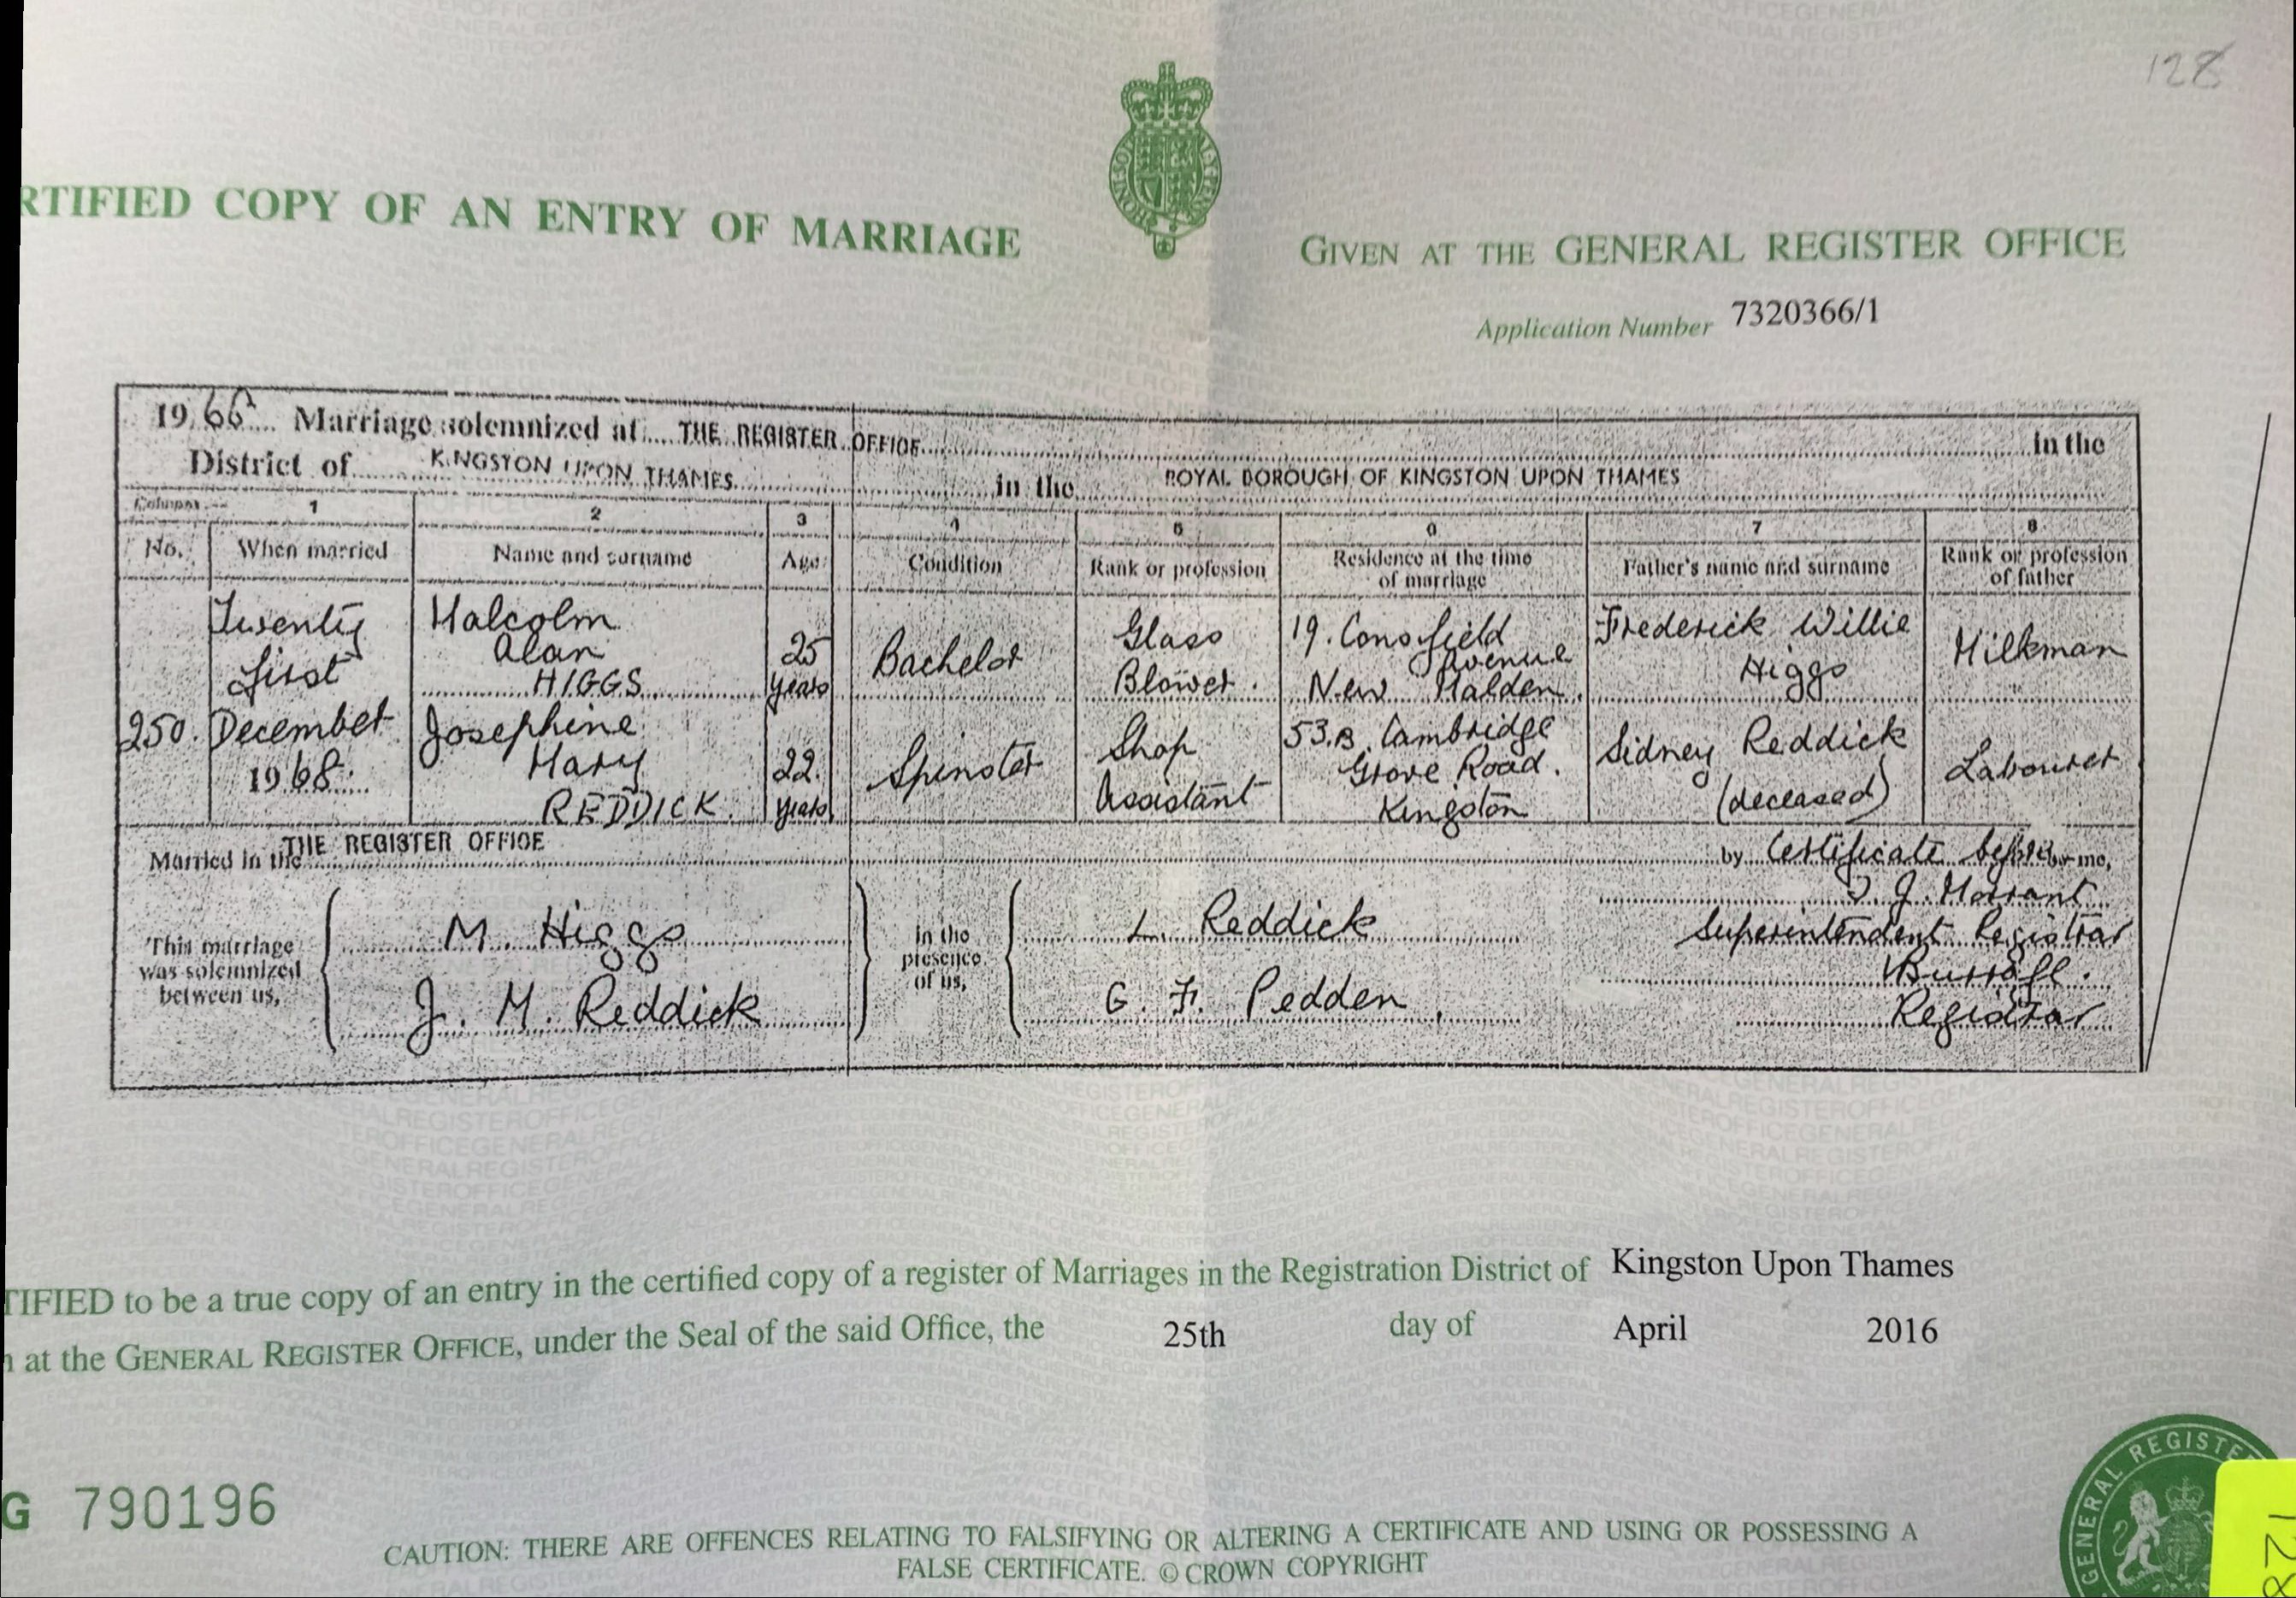 128
RTIFIED COPY OF AN ENTRY OF MARRIAGE
GIVEN AT THE GENERAL REGISTER OFFICE
Application Number 7320366/1
1966 Marriage solemnized at THE REGISTER OFFICE in the
District of KINGSTON UPON THAMES in the ROYAL BOROUGH OF KINGSTON UPON THAMES
Columns 1 2 3 4 5 6 7 8
No. When married Name and surname Age Condition Rank or profession Residence at the time of marriage Father's name and surname Rank or profession of father
250. Twenty First December 1968
Malcolm Alan HIGGS 25 years Bachelor Glass Blower. 19. Consfield Avenue New Malden. Frederick Willie Higgs Milkman
Josephine Mary REDDICK. 22. years Spinster Shop Assistant 53.B. Cambridge Grove Road. Kingston Sidney Reddick (deceased) Labourer
Married in the THE REGISTER OFFICE by Certificate before me,
This marriage was solemnized between us,
M. Higgs
J. M. Reddick
in the presence of us,
L. Reddick
G. F. Pedden
J. Morrant
Superintendent Registrar
Registrar
TIFIED to be a true copy of an entry in the certified copy of a register of Marriages in the Registration District of Kingston Upon Thames
at the GENERAL REGISTER OFFICE, under the Seal of the said Office, the 25th day of April 2016
G 790196
CAUTION: THERE ARE OFFENCES RELATING TO FALSIFYING OR ALTERING A CERTIFICATE AND USING OR POSSESSING A
FALSE CERTIFICATE. © CROWN COPYRIGHT
GENERAL REGISTE
128